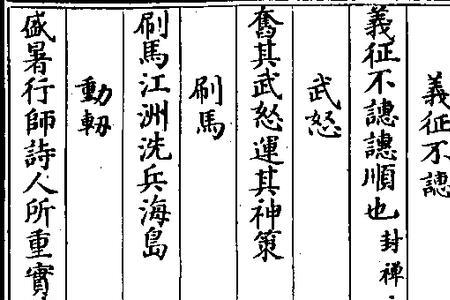 義征不譓
義征不譓譓順也封禪
武怒
奮其武怒運其神策
刷馬
刷馬江洲洗兵海島
動軔
盛暑行師詩人所重實